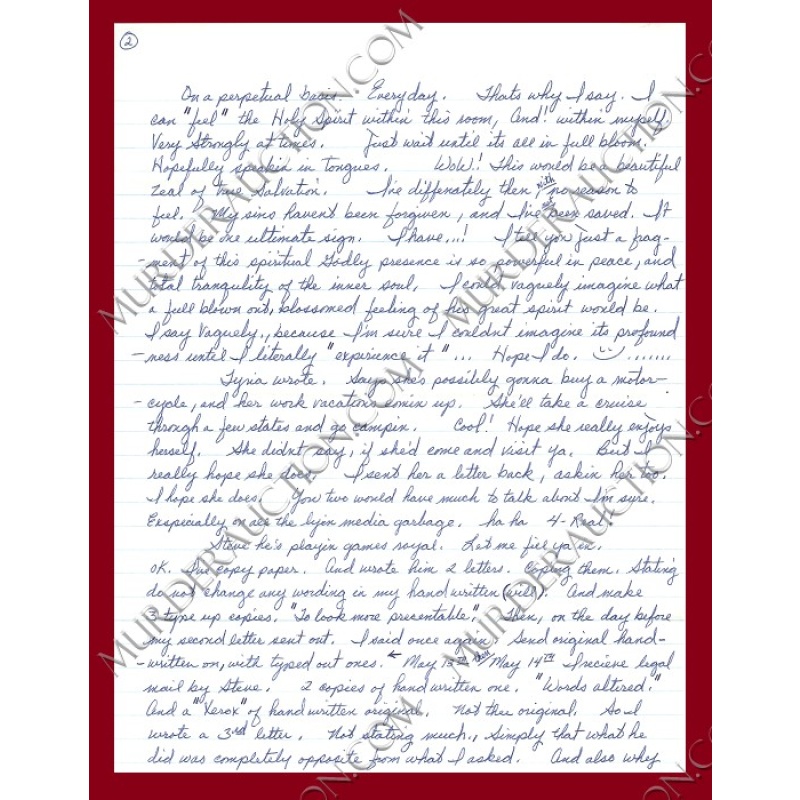 2
On a perpetual basis. Everyday. Thats why I say. I
can "feel" the Holy Spirit within this room, And! within myself
Very Strongly at times. Just wait until its all in full bloom.
Hopefully speakin in tongues. WoW!! This would be a beautiful
Zeal of true Salvation. I've diffenately then, with no reason to
feel. My sins haven't been forgiven, and I've been saved. It
would be one ultimate sign. I have...! I tell you just a frag-
-ment of this spiritual Godly presence is so powerful in peace, and
total tranquility of the inner soul, I could vaguely imagine what
a full blown out, blossomed feeling of his great spirit would be.
I say Vaguely., because I'm sure I couldnt imagine its profound
-ness until I literally "experience it"... Hope I do. .......
Tyria wrote. Says she's possibly gonna buy a motor-
-cycle, and her work vacations comin up. She'll take a cruise
through a few states and go campin. Cool! Hope she really enjoys
herself. She didnt say, if she'd come and visit ya. But I
really hope she does. I sent her a letter back, askin her too.
I hope she does. You two would have much to talk about I'm sure.
Exspecially on all the lyin media garbage. ha ha 4-Real!
Steve he's playin games royal. Let me fill ya in.
OK. I've copy paper. And wrote him 2 letters. Coping them. Stating
do not change any wording in my hand written (will). And make
3 type up copies. "To look more presentable." Then, on the day before
my second letter sent out. I said once again. Send original hand-
-written on, with typed out ones. ← May 13th May 14th I recieve legal
mail by Steve. 2 copies of hand written one. "Words altered."
And a "Xerox" of hand written original. Not thee original. So I
wrote a 3rd letter. Not stating much., Simply that what he
did was completely opposite from what I asked. And also why
MURDERAUCTION.COM
MURDERAUCTION.COM
MURDERAUCTION.COM
MURDERAUCTION.COM